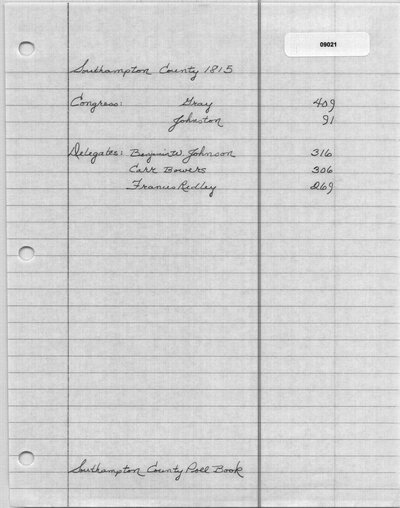 09021
Southampton County 1815
Congress: Gray 409
Johnston 91
Delegates: Benjamin W. Johnson 316
Carr Bowers 306
Francis Ridley 269
Southampton County Poll Book